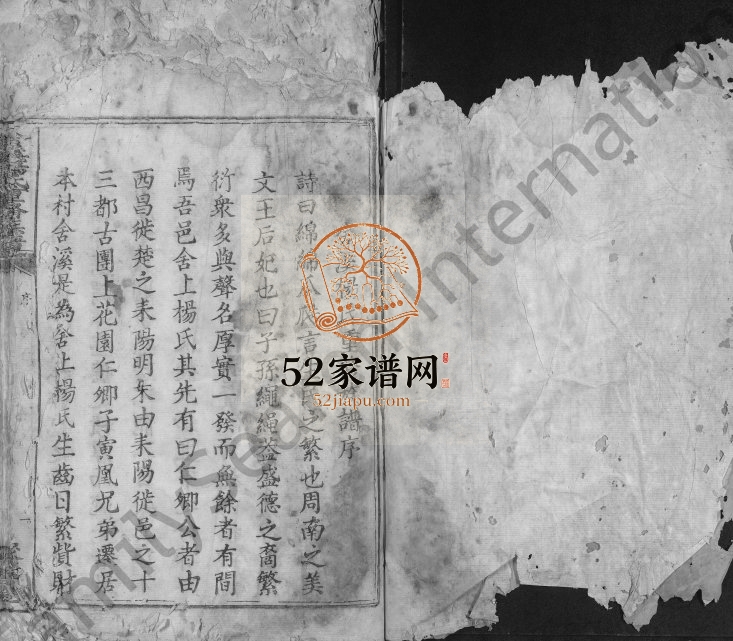 譜序
詩曰綿綿
之繁也周南之美
文王后妃也曰子孫繩繩益盛德之裔繁
衍衆多與聲名厚實一發而無餘者有間
焉吾邑舍上楊氏其先有曰仁卿公者由
西昌徙楚之耒陽明末由耒陽徙邑之十
三都古團上花園仁卿子寅凰兄弟遷居
本村舍溪是為舍上楊氏生齒日繁貲財
52家谱网
52jiapu.com
FamilySearch International